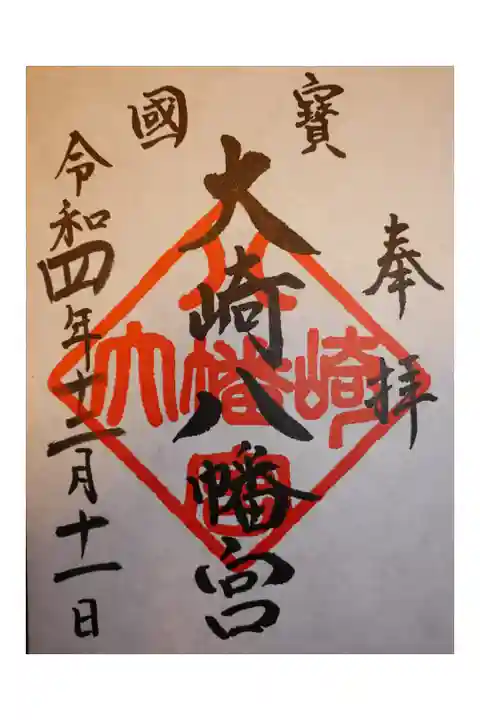 奉拝
國寶
大崎八幡宮
大崎八幡宮
令和四年十二月十一日